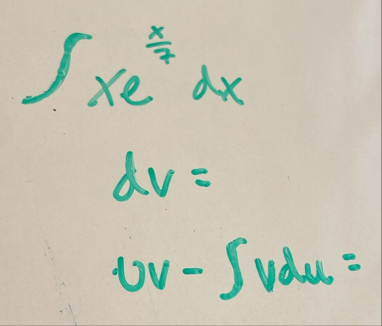 ∫ xe^{x/7} dx
dv =
uv - ∫ v du =